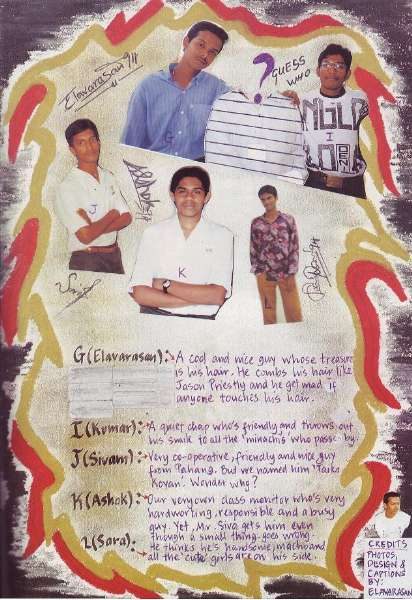 Elavarasan 94
? GUESS
WHO
I
J
K
L
G (Elavarasan):- A cool and nice guy whose treasure
is his hair. He combs his hair like
Jason Priestly and he get mad if
anyone touches his hair.
I (Kumar):- A quiet chap who's friendly and throws out
his smile to all the 'minachis' who passe by.
J (Sivam):- Very co-operative, friendly and nice guy
from Pahang. But we named him 'Taiko
Kovan'. Wonder why?
K (Ashok):- Our very own class monitor who's very
hardworking, responsible and a busy
guy. Yet, Mr. Siva gets him even
though a small thing goes wrong.
L (Sara):- He thinks he's handsome, macho and
all the 'cute' girls are on his side.
CREDITS
PHOTOS,
DESIGN &
CAPTIONS
BY:
ELAVARASAN